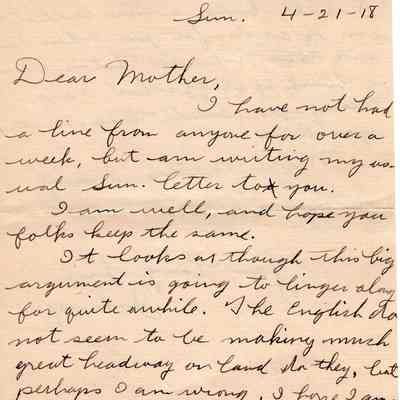 Sun. 4-21-18
Dear Mother,
I have not had
a line from anyone for over a
week, but am writing my us-
ual Sun. letter to you.
I am well, and hope you
folks keep the same.
It looks as though this big
argument is going to linger along
for quite awhile. The English do
not seem to be making much
great headway on land do they, but
perhaps I am wrong, I hope I am.